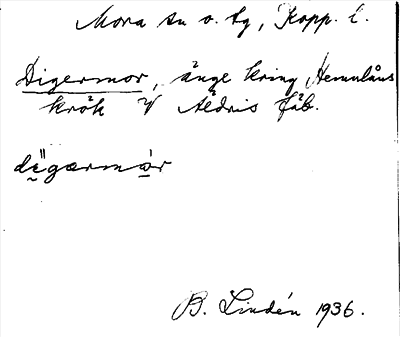 Mora sn o. tg, Kopp. l.
Digermor, änge kring Hemulåns
krök V Åldris fäb.
dïgærmór
B. Lindén 1936.